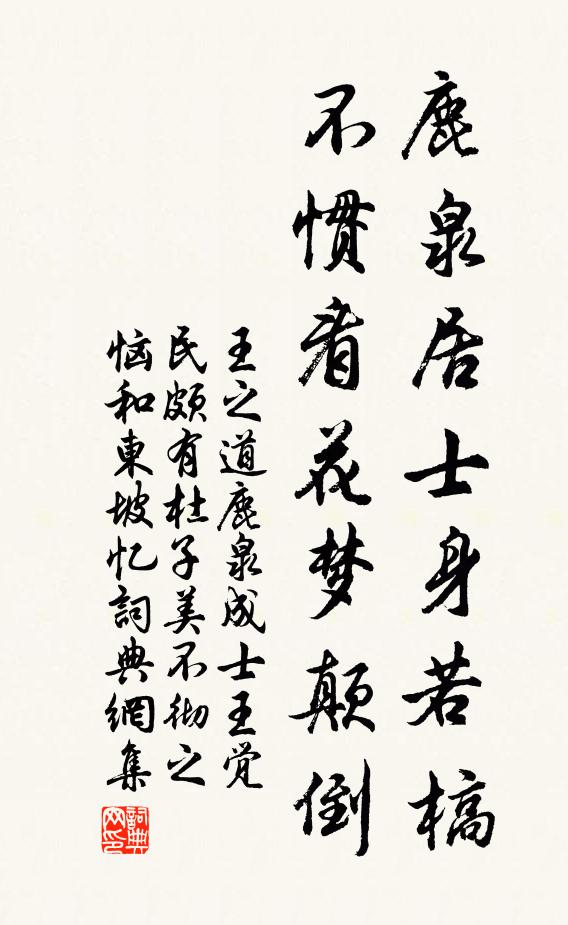 鹿泉居士身若槁
不惯看花梦颠倒
王之道鹿泉成士王觉
民颇有杜子美不彻之
恼和東坡忆詞典網集
詞典
网印